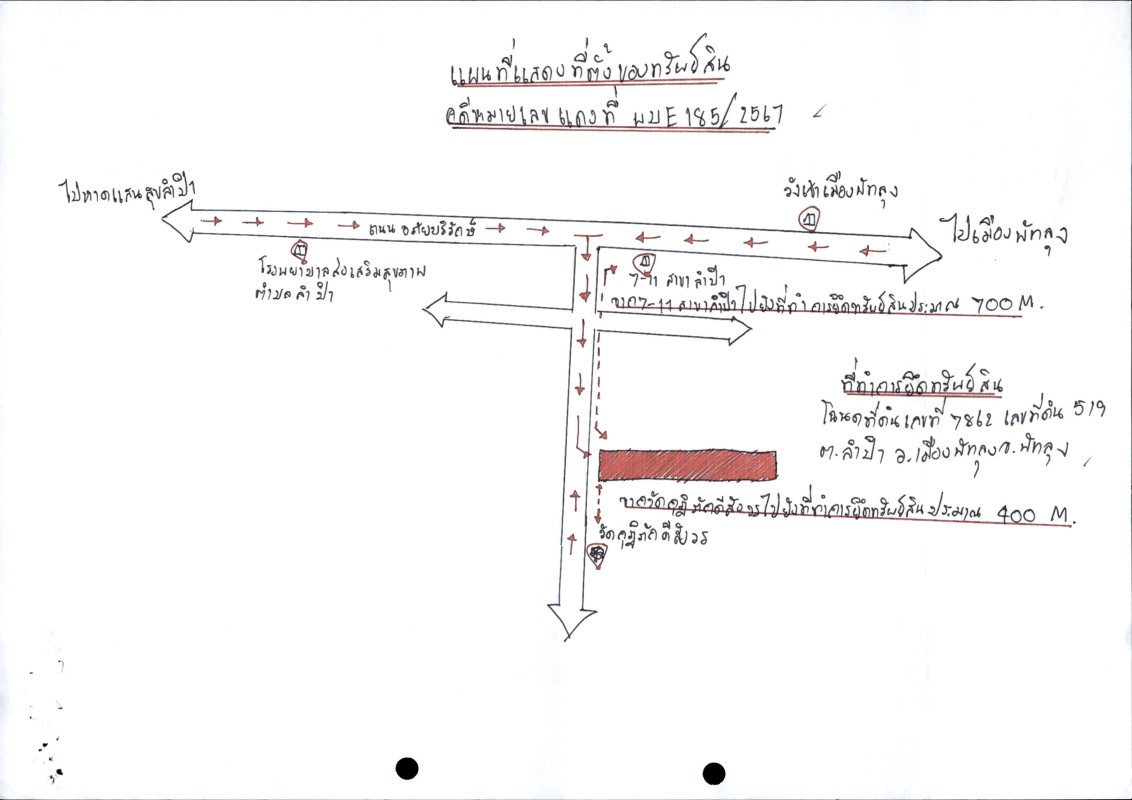 แผนที่แสดงที่ตั้งของทรัพย์สิน
คดีหมายเลขแดงที่ ผบE185/2567
ไปหาดแสนสุขลำปำ
วังเจ้าเมืองพัทลุง
ถนน อภัยบริรักษ์
ไปเมืองพัทลุง
โรงพยาบาลส่งเสริมสุขภาพ
ตำบลลำปำ
7-11 สาขาลำปำ
จาก7-11 สาขาลำปำไปยังที่ทำการยึดทรัพย์สินประมาณ 700 M.
ที่ทำการยึดทรัพย์สิน
โฉนดที่ดินเลขที่ 7862 เลขที่ดิน 519
ต.ลำปำ อ.เมืองพัทลุง จ.พัทลุง
ไปยังที่ทำการยึดทรัพย์สินประมาณ 400 M.